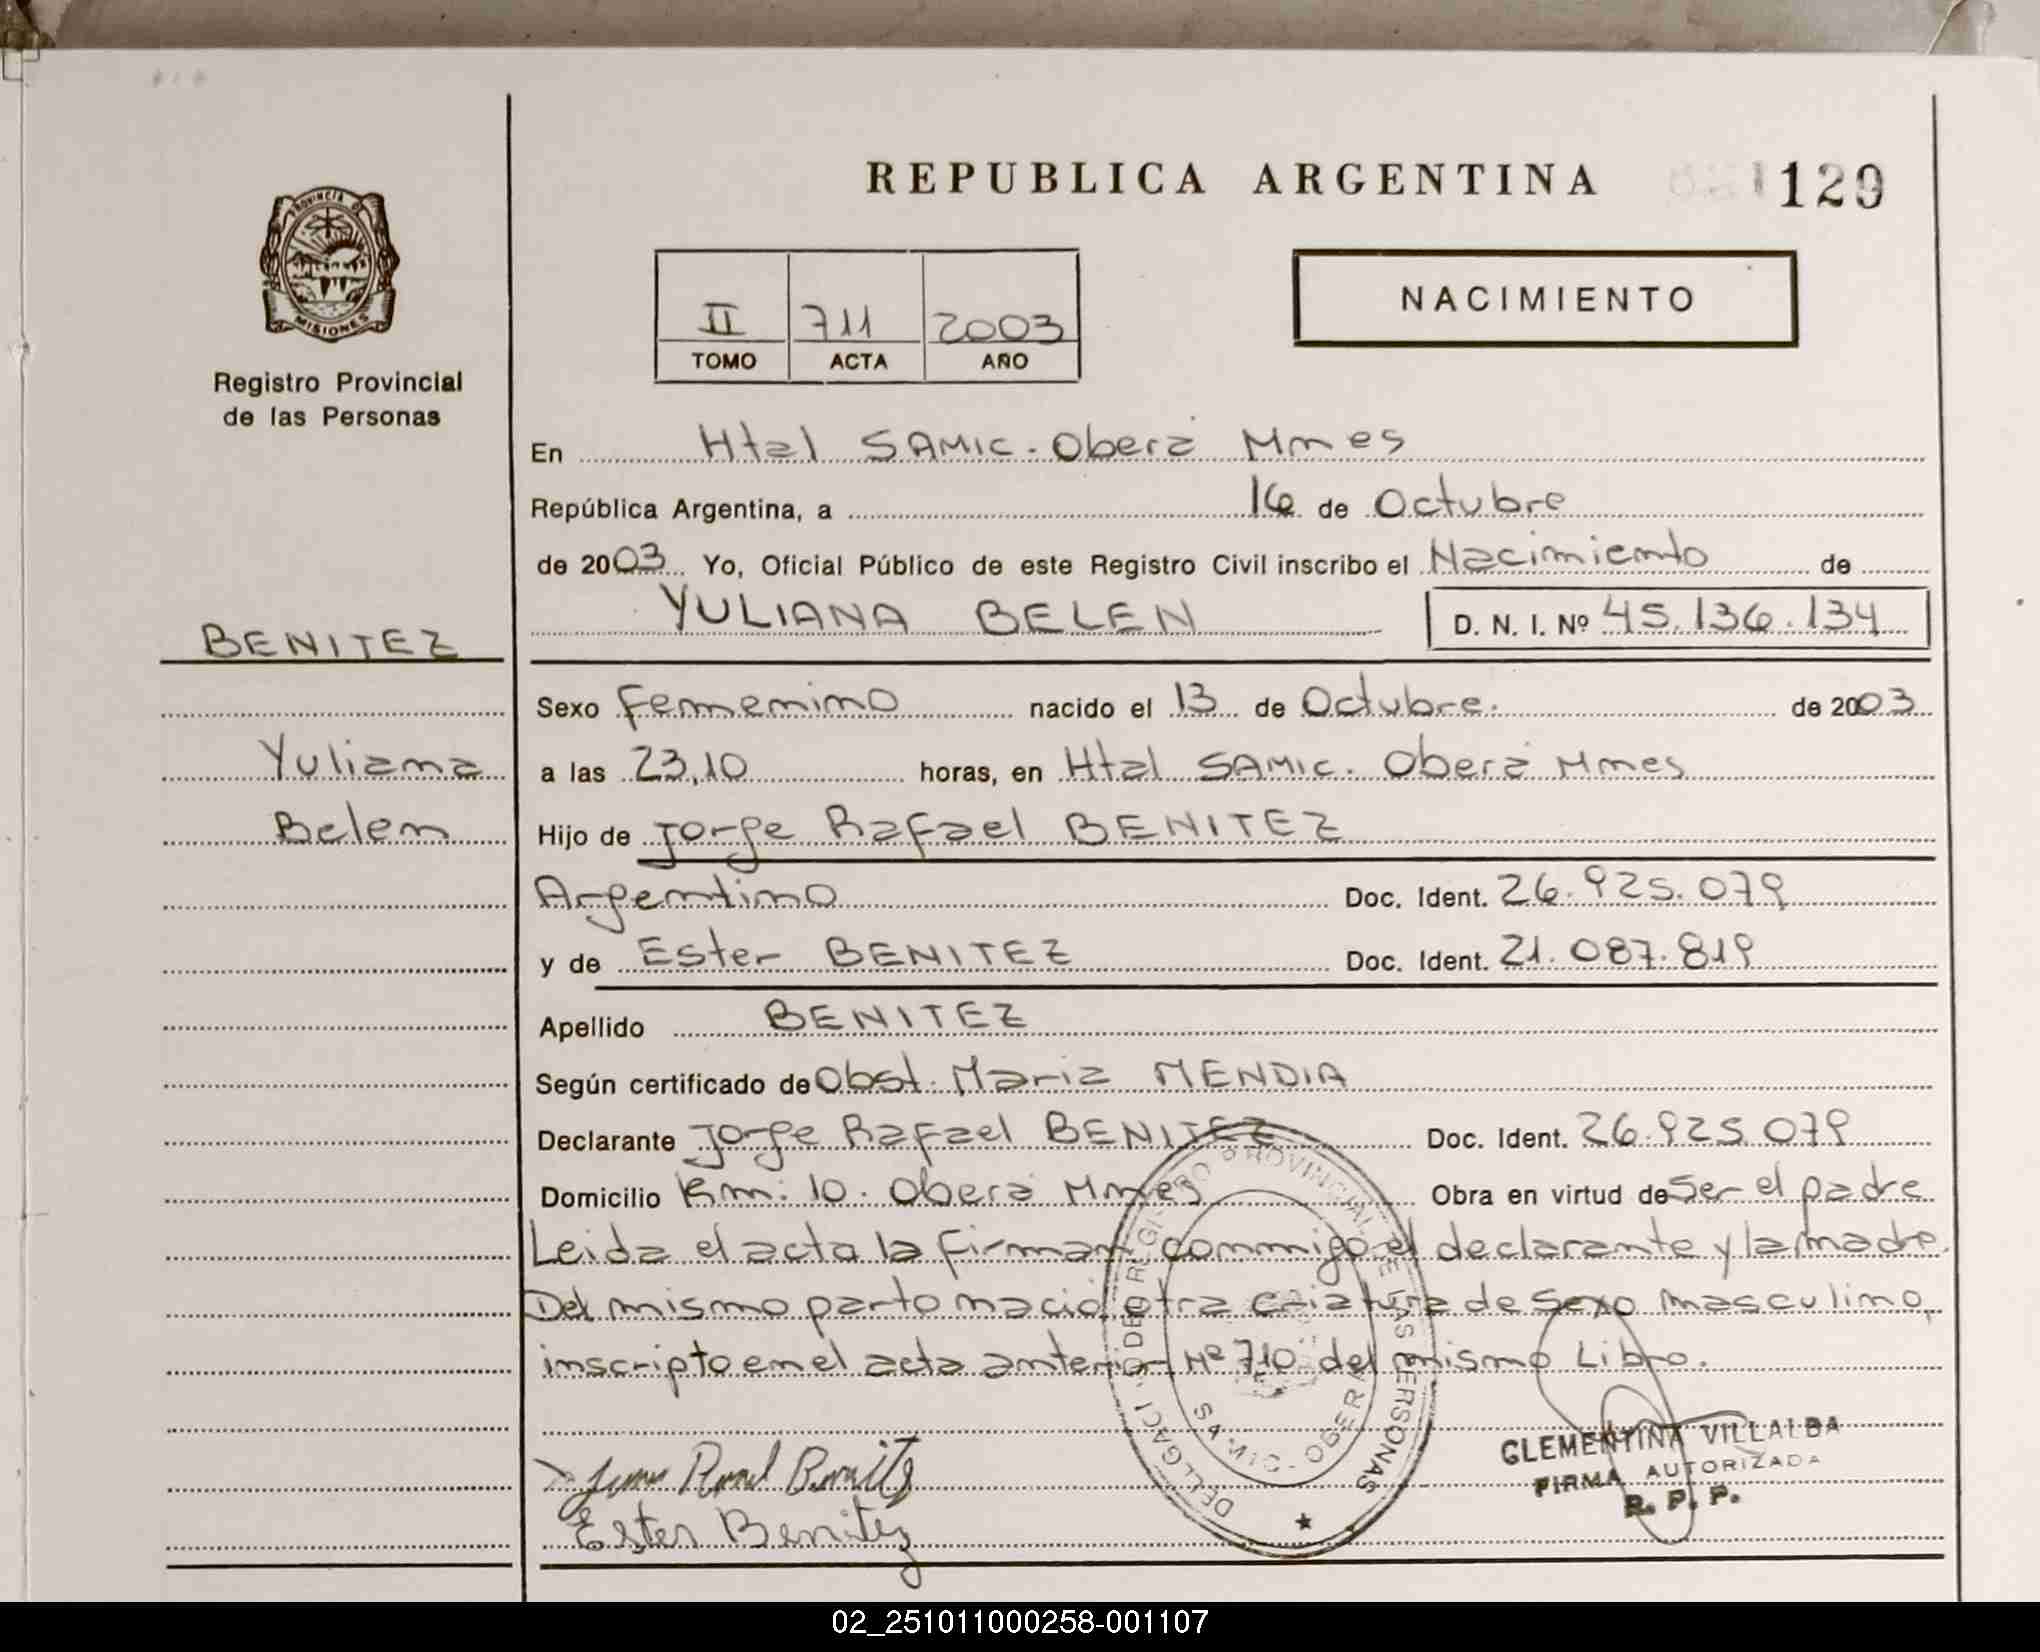 REPUBLICA ARGENTINA 129
PROVINCIA DE MISIONES
Registro Provincial
de las Personas
II 711 2003
TOMO ACTA AÑO
NACIMIENTO
En Htal SAMIC. Oberá Mnes
República Argentina, a 16 de Octubre
de 2003 Yo, Oficial Público de este Registro Civil inscribo el Nacimiento de
YULIANA BELEN D. N. I. Nº 45.136.134
BENITEZ
Yuliana
Belen
Sexo Femenino nacido el 13 de Octubre. de 2003
a las 23,10 horas, en Htal SAMIC. Oberá Mnes
Hijo de Jorge Rafael BENITEZ
Argentino Doc. Ident. 26.925.079
y de Ester BENITEZ Doc. Ident. 21.087.819
Apellido BENITEZ
Según certificado de Obst. Maria MENDIA
Declarante Jorge Rafael BENITEZ Doc. Ident. 26.925.079
Domicilio Km: 10. Oberá Mnes Obra en virtud de Ser el padre
Leida el acta la firman conmigo el declarante y la madre.
Del mismo parto nació otra criatura de sexo masculino,
inscripto en el acta anterior Nº 710 del mismo Libro.
REGISTRO PROVINCIAL DE LAS PERSONAS
SAMIC - OBERA
Benitez
Ester Benitez
CLEMENTINA VILLALBA
FIRMA AUTORIZADA
R. P. P.
02_251011000258-001107